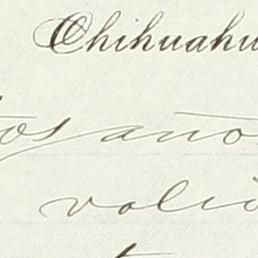 Chihuahu
os año
valio